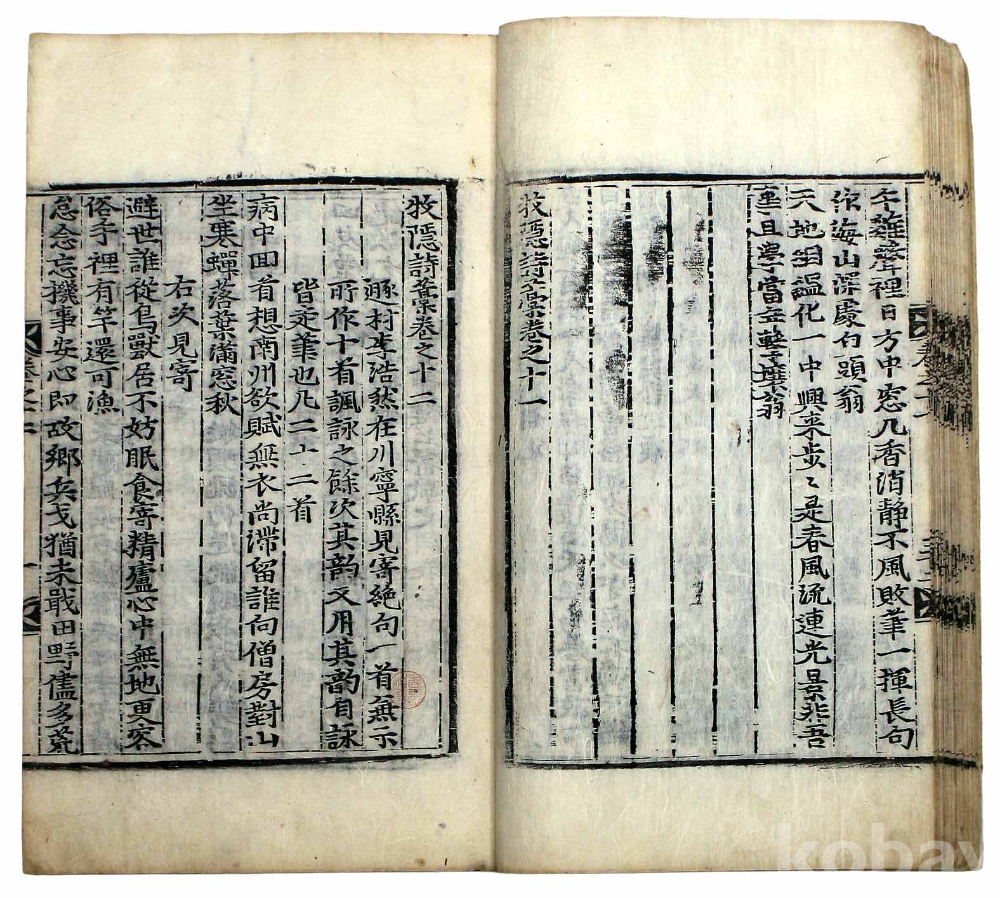 午雞聲裡日方中窓几香消靜不風敗筆一揮長句
海山深處白頭翁
天地絪縕化一中興來步〻是春風流連光景非吾
事且學當年擊壤翁
牧隱詩藁卷之十一
牧隱詩藁卷之十二
遁村李浩然在川寧縣見寄絶句一首兼示
所作十首諷詠之餘次其韵又用其韵自詠
皆走筆也凡二十二首
病中回首想南州欲賦無衣尚滯留誰向僧房對山
坐寒蟬落葉滿窓秋
右次見寄
避世誰從鳥獸居不妨眠食寄精廬心中無地更容
俗手裡有竿還可漁
忽念忘機事安心即故鄉兵戈猶未戢田野儘多荒
kobay